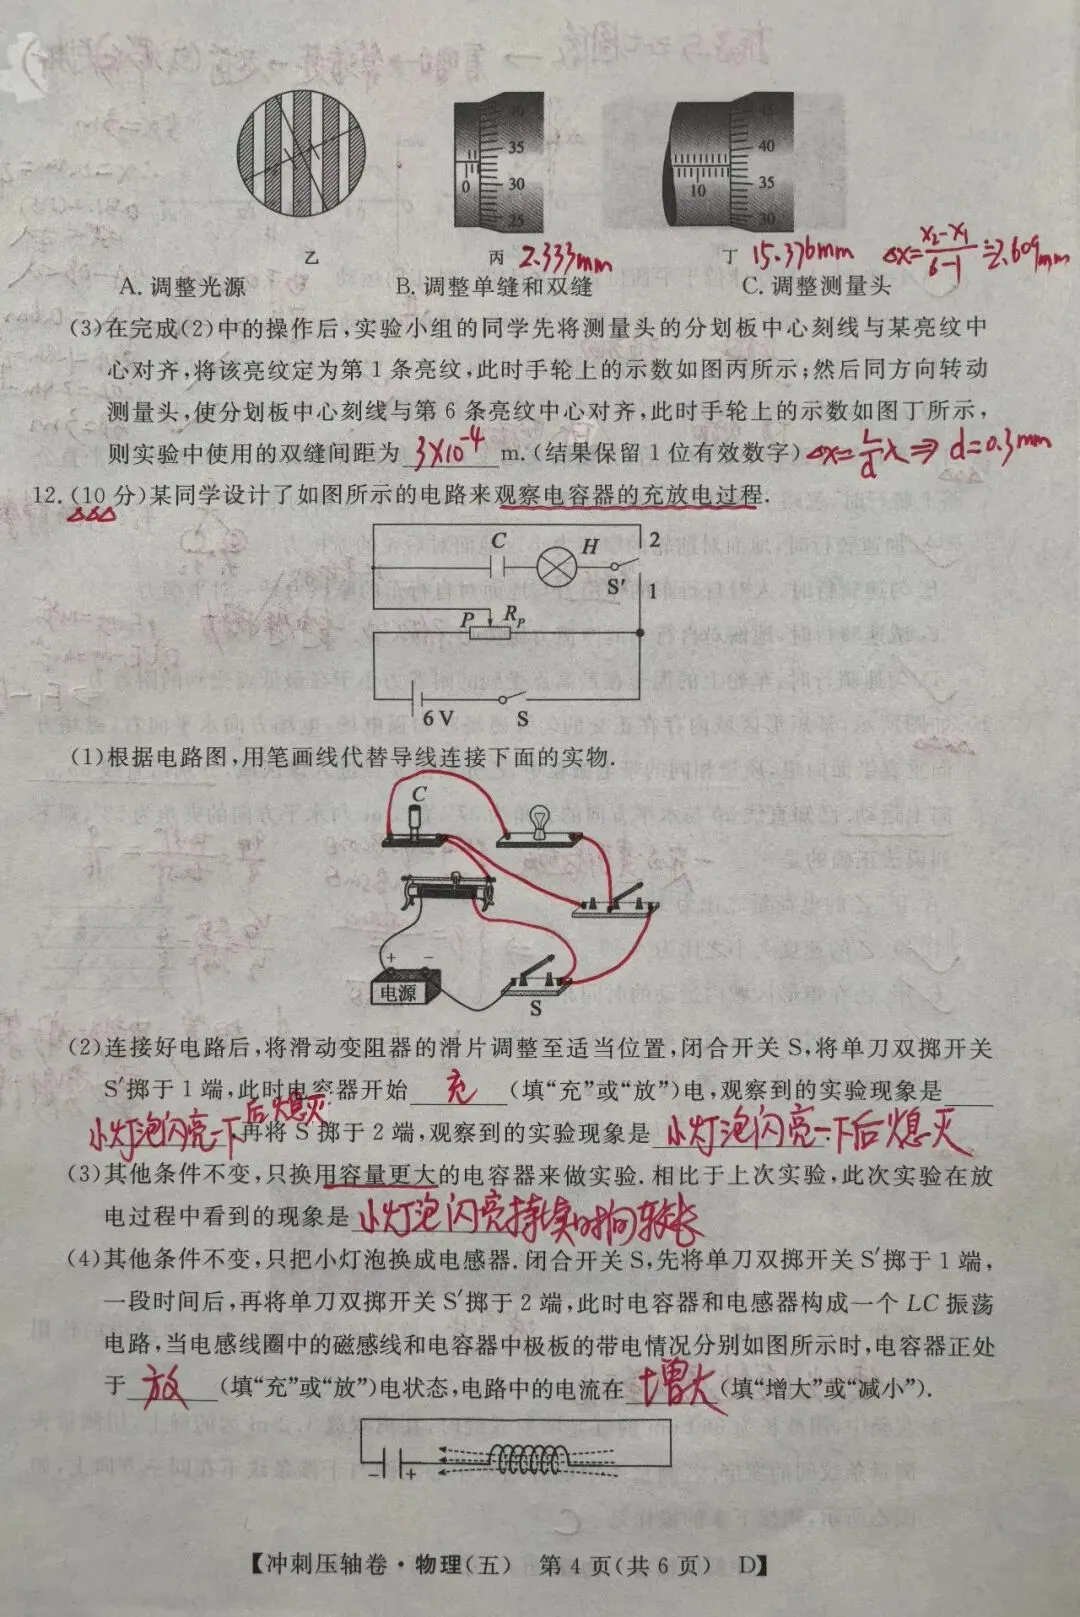 35
0
30
25
40
10
35
30
乙
丙 2.333mm
丁 15.376mm Δx=x₂-x₁/6-1=2.609mm
A. 调整光源 B. 调整单缝和双缝 C. 调整测量头
(3)在完成(2)中的操作后,实验小组的同学先将测量头的分划板中心刻线与某亮纹中
心对齐,将该亮纹定为第 1 条亮纹,此时手轮上的示数如图丙所示;然后同方向转动
测量头,使分划板中心刻线与第 6 条亮纹中心对齐,此时手轮上的示数如图丁所示,
则实验中使用的双缝间距为 3×10⁻⁴ m.(结果保留 1 位有效数字) Δx=L/dλ⇒d=0.3mm
12.(10 分)某同学设计了如图所示的电路来观察电容器的充放电过程.
C H 2
S′ 1
P R_P
6 V S
(1)根据电路图,用笔画线代替导线连接下面的实物.
C
+ −
电源
S
(2)连接好电路后,将滑动变阻器的滑片调整至适当位置,闭合开关 S,将单刀双掷开关
S′掷于 1 端,此时电容器开始 充 (填“充”或“放”)电,观察到的实验现象是
小灯泡闪亮一下后熄灭 再将 S′掷于 2 端,观察到的实验现象是 小灯泡闪亮一下后熄灭
(3)其他条件不变,只换用容量更大的电容器来做实验. 相比于上次实验,此次实验在放
电过程中看到的现象是 小灯泡闪亮持续时间较长
(4)其他条件不变,只把小灯泡换成电感器. 闭合开关 S,先将单刀双掷开关 S′掷于 1 端,
一段时间后,再将单刀双掷开关 S′掷于 2 端,此时电容器和电感器构成一个 LC 振荡
电路,当电感线圈中的磁感线和电容器中极板的带电情况分别如图所示时,电容器正处
于 放 (填“充”或“放”)电状态,电路中的电流在 增大 (填“增大”或“减小”).
− +
【冲刺压轴卷·物理(五) 第 4 页(共 6 页) D】